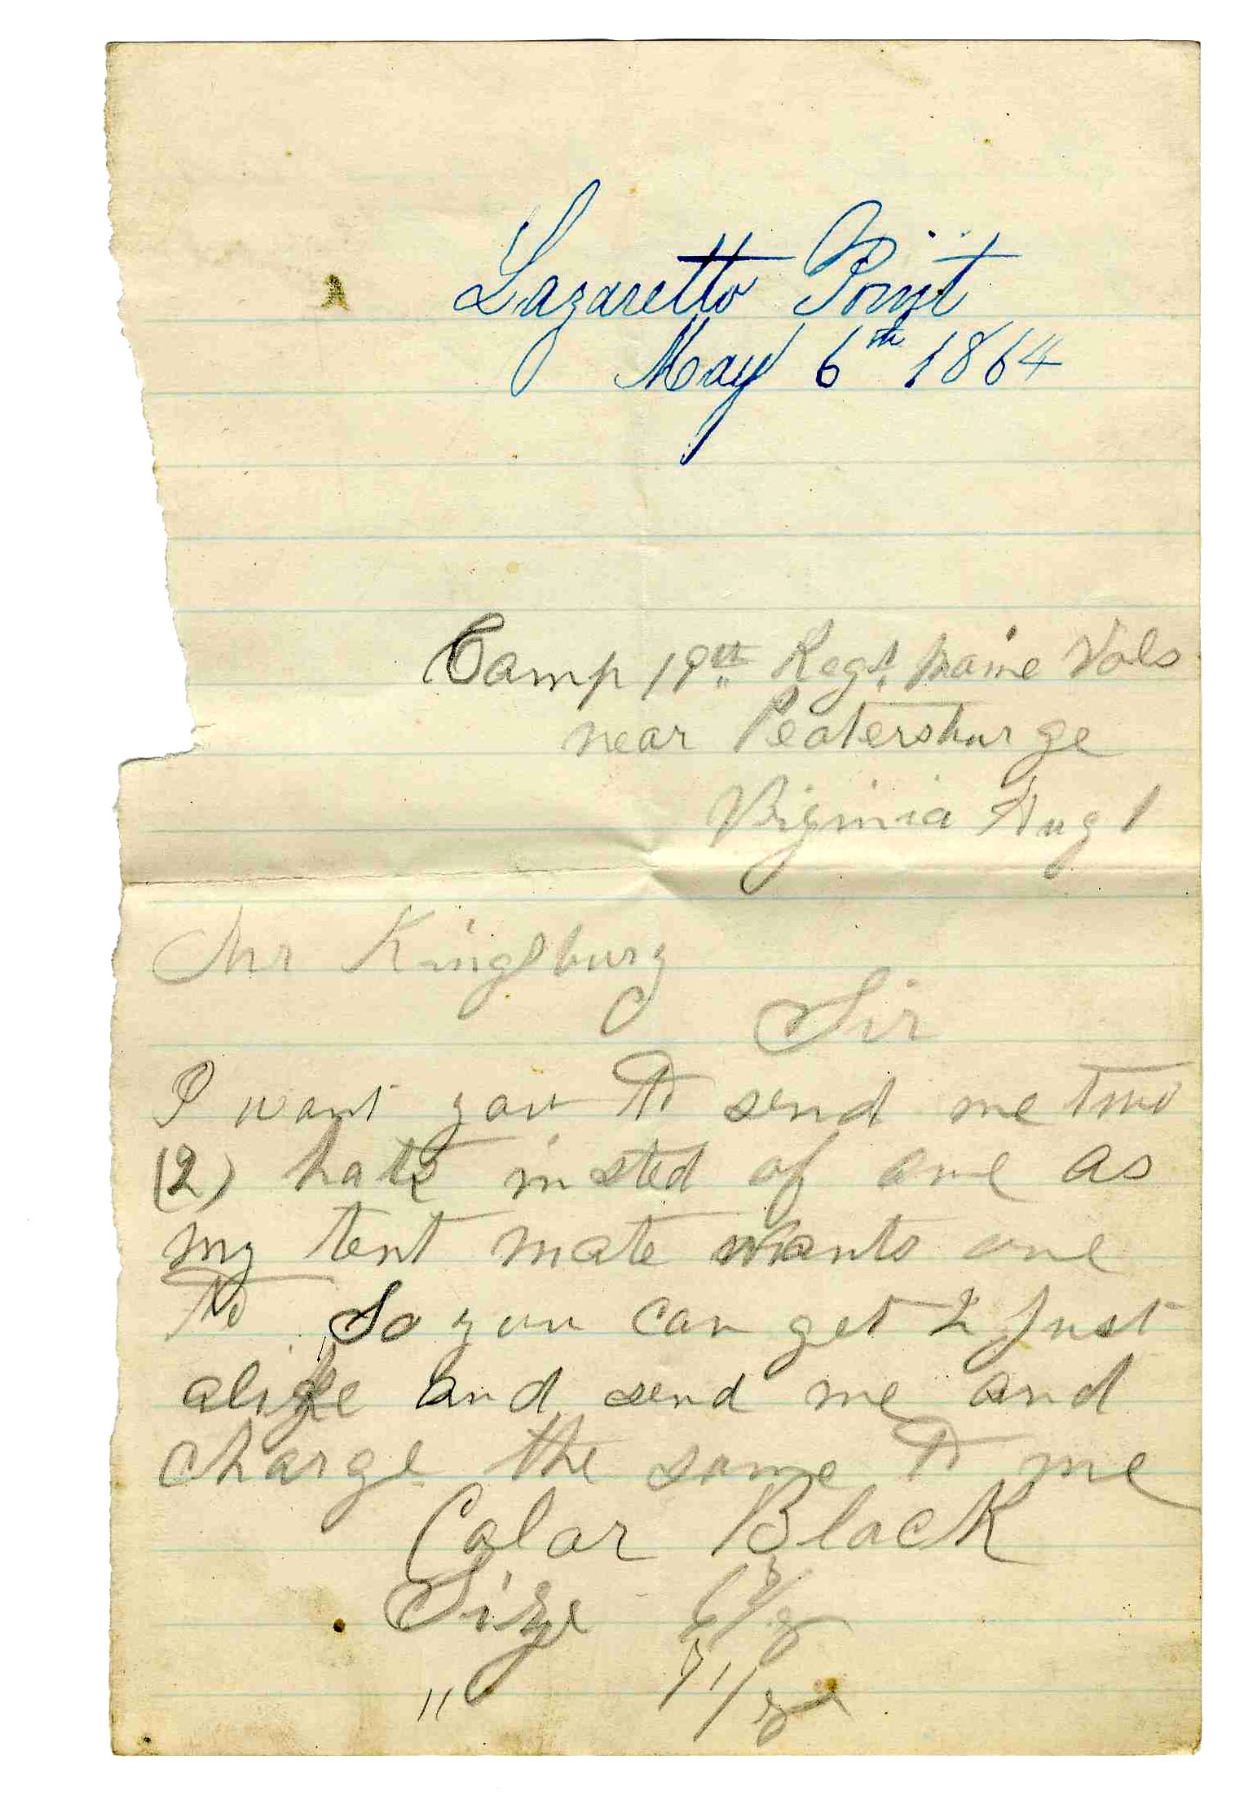 Lazaretto Point
May 6th 1864
Camp 19th Regt. Maine Vols
near Peatersburge
Virginia Aug 1
Mr Kingsbury
Sir
I want you to send me two
(2) hats insted of one as
my tent mate wants one
to So you can get 2 Just
alike and send me and
charge the same to me
Color Black
Size 6 7/8
" 7 1/8